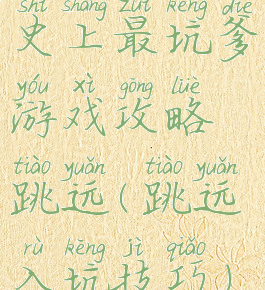 shǐ shàng zuì kēng diē
史上最坑爹
yóu xì gōng lüè
游戏攻略
tiào yuǎn tiào yuǎn
跳远(跳远
rù kēng jì qiǎo
入坑技巧)